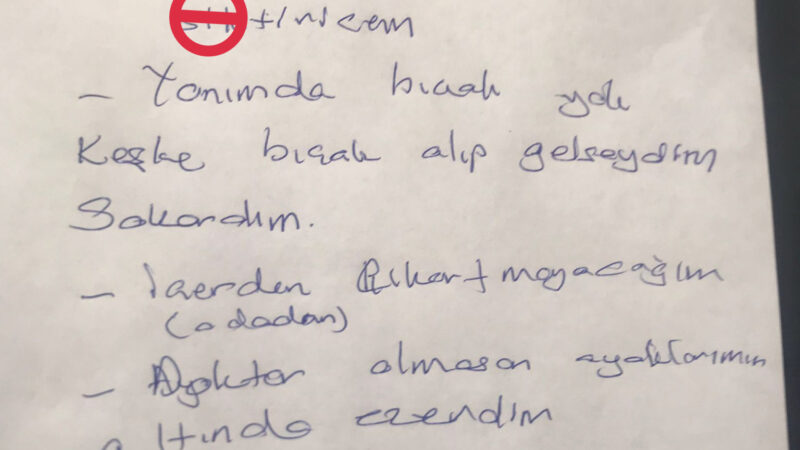 - Yanımda bıçak yok
Keşke bıçak alıp gelseydim
Sokardım.
- İçerden çıkartmayacağım
(odadan)
- Doktor olmasan ayaklarımın
altında ezerdim